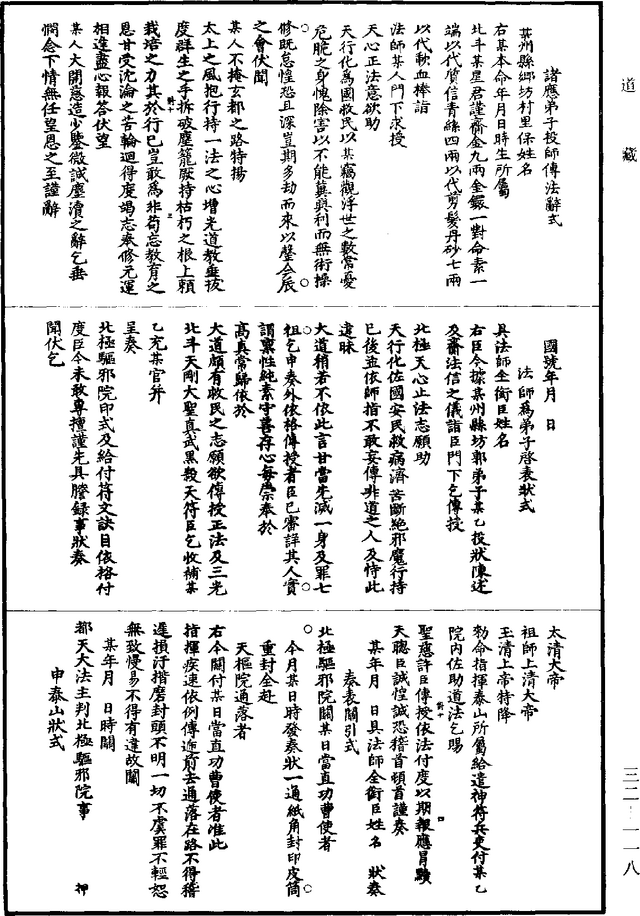 道藏
諸應弟子投師傳法辭式
某州縣鄉坊村里保姓名
右某本命年月日時生所屬
北斗某星君謹齎金九兩金鐶一對命素一
端以代質信青絲四兩以代剪髮丹砂七兩
以代歃血棒詣
法師某人門下求授
天心正法意欲助
天行化為國救民以某竊觀浮世之數常憂
危脆之身愧除害以不能冀興利而無術操
修既怠惶恐且深豈期多劫而來以罄会辰
之會伏聞
某人不掩玄都之路特揚
太上之風抱行持一法之心增先道教垂拔
度群生之手拆破塵籠厭持枯朽之根上頼
栽培之力其於行已豈敢為非苟忘教育之
恩甘受沈淪之苦輪迴得度竭志奉修元運
相逢盡心報答伏望
某人大開慈造少鑒微誠塵瀆之辭乞垂
憫念下情無任望恩之至謹辭
國號年月 日
法師為弟子啓表狀式
具法師全銜臣姓名
右臣今據某州縣坊郭弟子某乙投狀陳述
及齎法信之儀詣臣門下乞傳授
北極天心正法志願助
天行化佐國安民救病濟苦斷絕邪魔行持
已後並依師指不敢妄傳非道之人及恃此
違昧
大道稍若不依此言甘當先滅一身及罪七
祖乞申奏外依格傳授者臣已審詳其人實
謂稟性純素守善存心每為崇奉於
高真常歸依於
大道頗有救民之志願欲傳授正法及三光
北斗天剛大聖真武黑殺天符臣乞收補某
乙充某官并
呈奏
北極驅邪院印式及給付符文訣目依格付
度臣今未敢專擅謹先具謄錄事狀奏
聞伏乞
太清大帝
祖師上清大帝
玉清上帝特降
勑命指揮泰山所屬給遣神符兵吏付某乙
院内佐助道法乞賜
聖慈許臣傳授依法付度以期報應冒瀆
天聰臣誠惶誠恐稽首頓首謹奏
某年月 日具法師全銜臣姓名 狀奏
奏表關引式
北極驅邪院關某日當直功曹使者
今月某日時發奏狀一通紙角封印皮筒
重封全赴
天樞院通落者
右今關付某日當直功曹使者准此
指揮疾速依例傳遞前去通落在路不得稽
遲損汙揩磨封頭不明一切不虞罪不輕恕
無致慢易不得有違故關
某年月 日時關
都天大法主判北極驅邪院事 押
申泰山狀式
三二—一一八